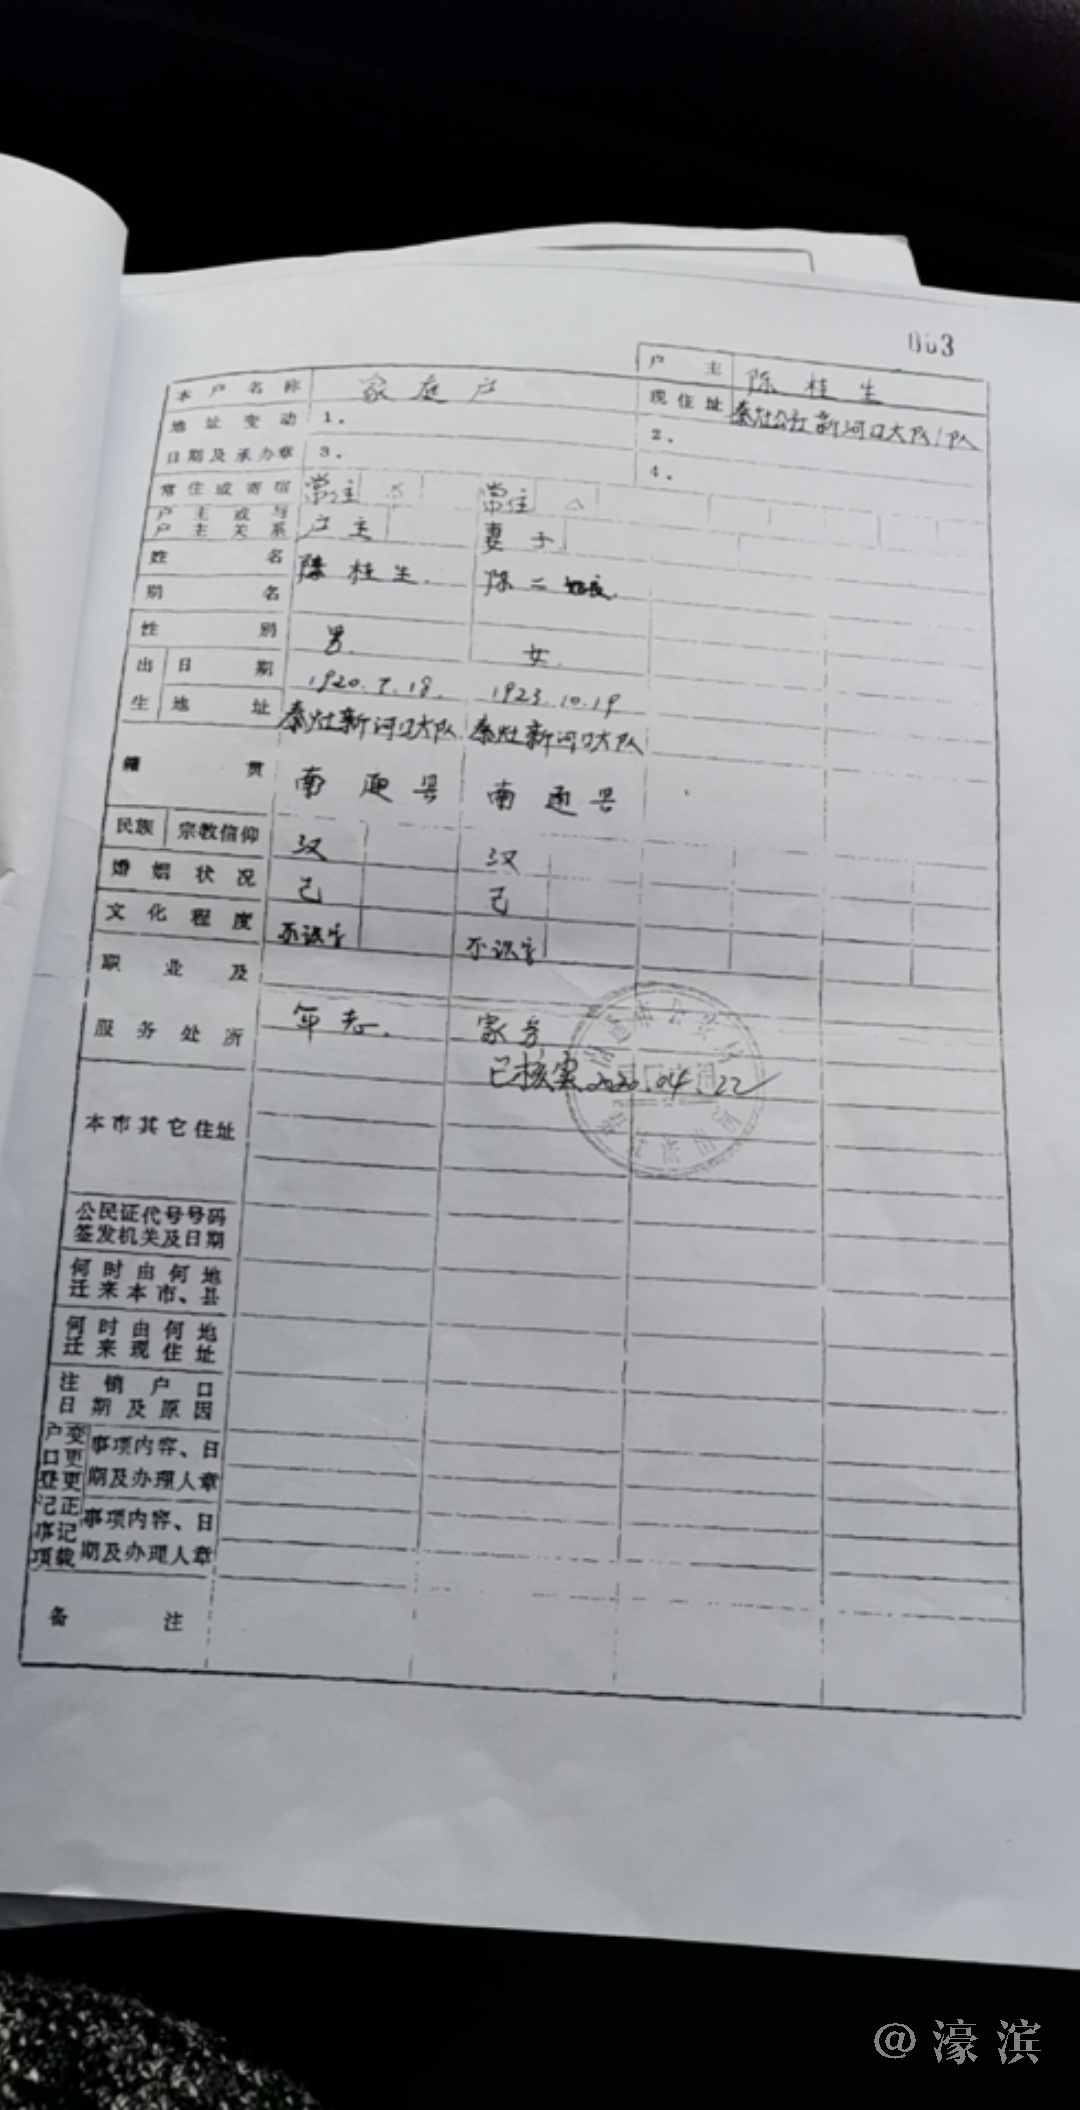 003
户主 陈桂生
本户名称 家庭户
现住址 秦灶公社新河口大队1队
地址变动日期及承办章 1. 2.
3. 4.
常住或寄宿 常住 常住
户主或与户主关系 户主 妻子
姓名 陈桂生 陈二
别名
性别 男 女
出生 日期 1920.7.18. 1923.10.19
地址 秦灶新河口大队 秦灶新河口大队
籍贯 南通县 南通县
民族 宗教信仰 汉 汉
婚姻状况 已 已
文化程度 不识字 不识字
职业及服务处所 年老 家务
已核实2020.04.22
本市其它住址
公民证代号号码
签发机关及日期
何时由何地
迁来本市、县
何时由何地
迁来现住址
注销户口
日期及原因
户口登记事项 变更更正记载
事项内容、日期及办理人章
事项内容、日期及办理人章
备注
@濠滨